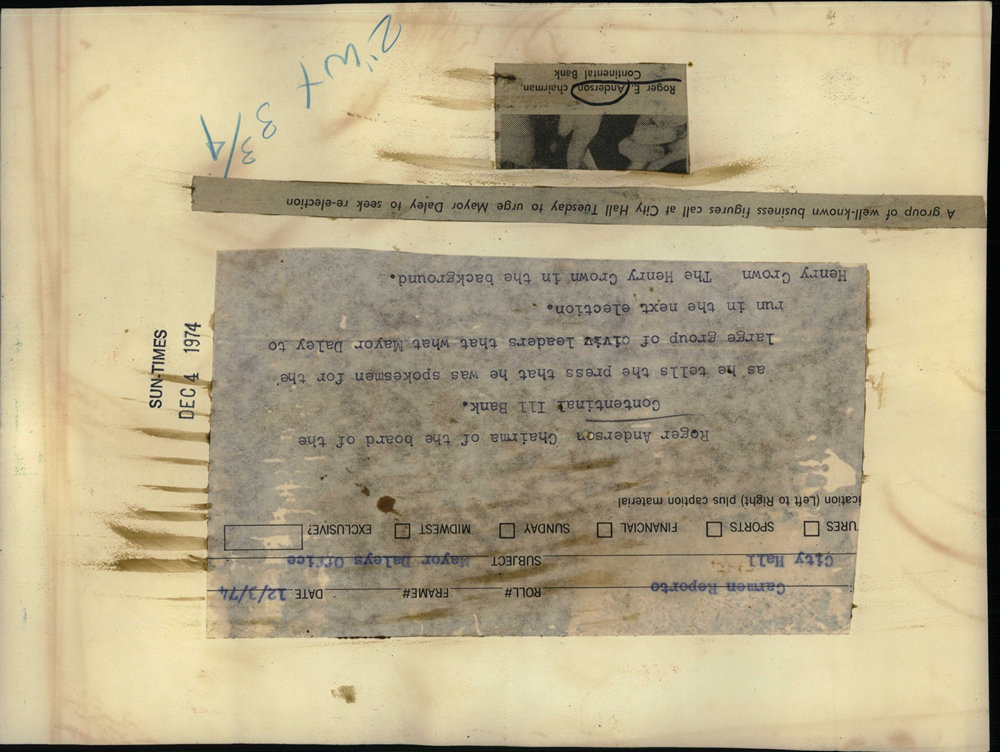 2" WT
3 3/4
Roger E. Anderson, chairman,
Continental Bank
A group of well-known business figures call at City Hall Tuesday to urge Mayor Daley to seek re-election
SUN-TIMES
DEC 4 1974
Carmen Reporto ROLL# FRAME# DATE 12/3/74
City Hall SUBJECT Mayor Daleys Office
URES SPORTS FINANCIAL SUNDAY MIDWEST EXCLUSIVE?
ication (Left to Right) plus caption material
Roger Anderson Chairma of the board of the
Contentinal Ill Bank.
as he tells the press that he was spokesmen for the
large group of civiv leaders that what Mayor Daley to
run in the next election.
Henry Crown The Henry Crown in the background.